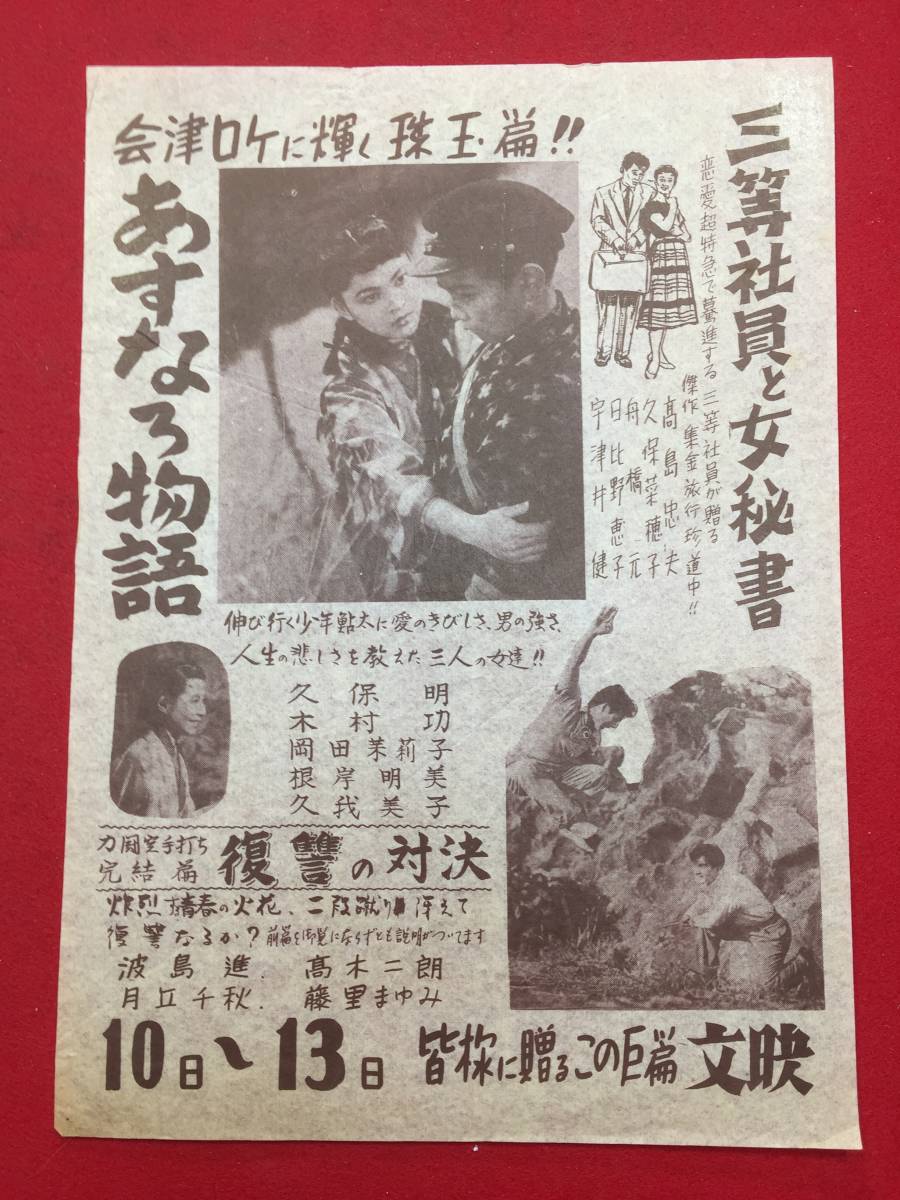 会津ロケに輝く珠玉篇!!
あすなろ物語
三等社員と女秘書
恋愛超特急で驀進する三等社員が贈る
傑作集金旅行珍道中!!
髙島忠夫
久保菜穂子
舟橋元
日比野恵子
宇津井健
伸び行く少年鮎太に愛のきびしさ、男の強さ、
人生の悲しさを教えた三人の女達!!
久保明
木村功
岡田茉莉子
根岸明美
久我美子
力闘空手打ち
完結篇
復讐の対決
炸烈す青春の火花、二段蹴り冴えて
復讐なるか?前篇を御覧にならずとも説明がついてます
波島進.髙木二朗
月丘千秋.藤里まゆみ
10日～13日
皆様に贈るこの巨篇
文映